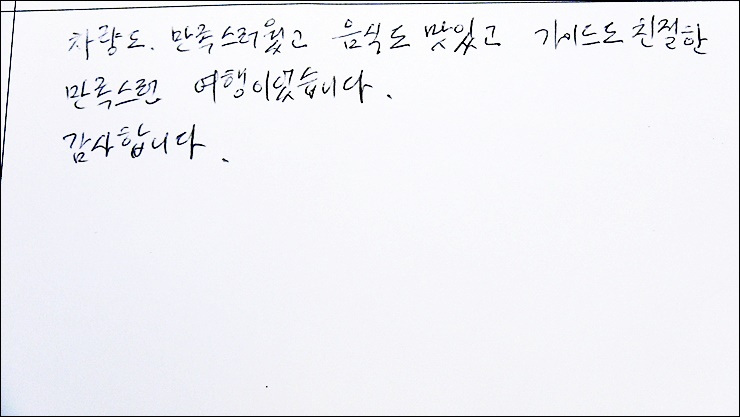 차량도. 만족스러웠고 음식도 맛있고 가이드도 친절한
만족스런 여행이였습니다.
감사합니다.